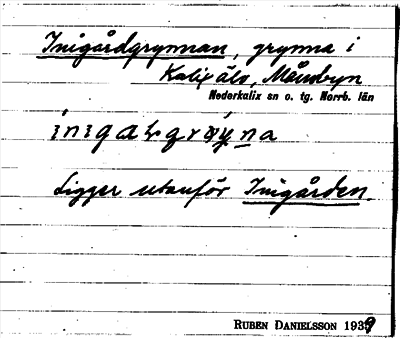 Inigårdgrynnan, grynna i
Kalix älv, Månsbyn
Nederkalix sn o. tg. Norrb. län
Ligger utanför Inigården.
RUBEN DANIELSSON 1939